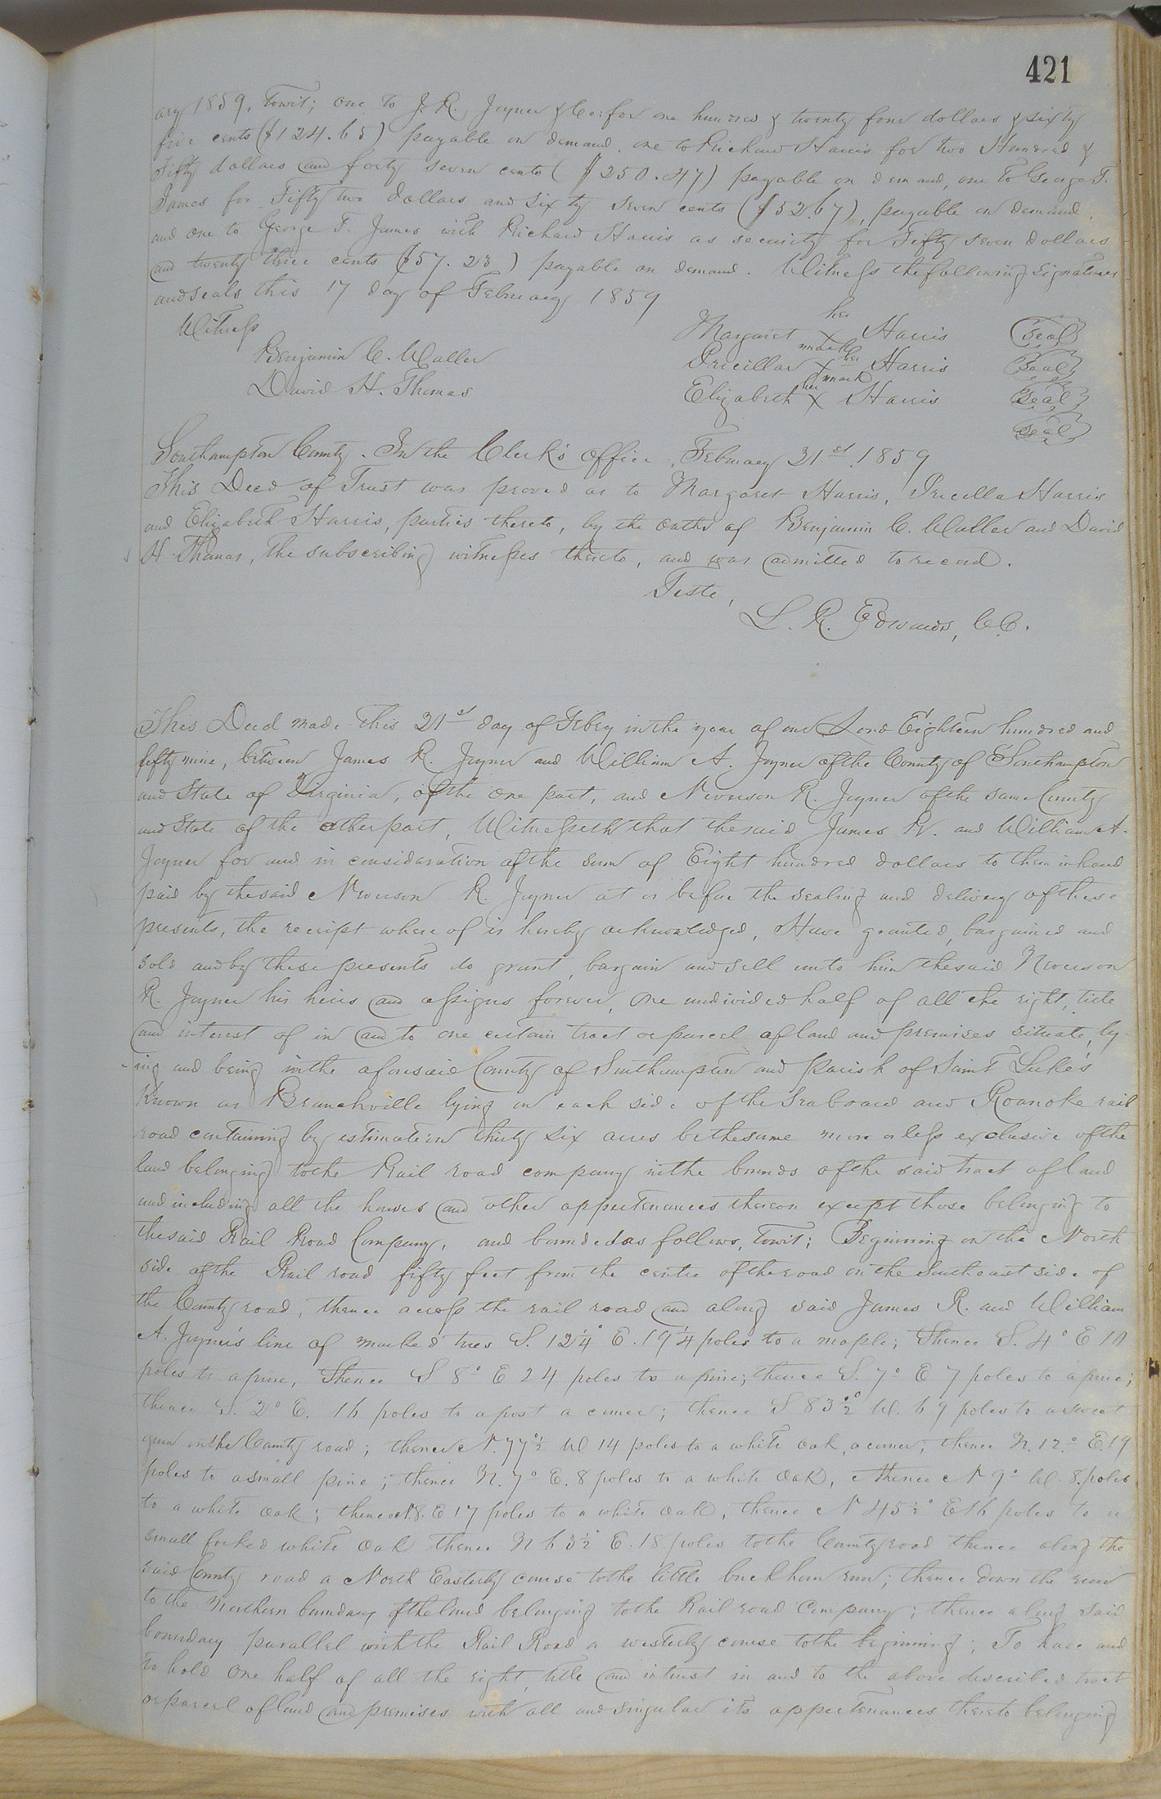 421
ary 1859, towit; one to J. R. Joyner & Co: for one hundred & twenty four dollars & sixty
five cents ($124.65) payable on demand, one to Richard Harris for two Hundred &
fifty dollars and forty seven cents ($250.47) payable on demand, one to George T.
James for Fifty two dollars and sixty seven cents ($52.67), payable on demand,
and one to George T. James with Richard Harris as security for Fifty seven dollars
and twenty three cents ($57.23) payable on demand. Witness the following signatures
and seals this 17 day of February 1859
Witness
Benjamin C. Waller
David H. Thomas
her
Margaret X Harris Seal
mark
her
Pricillar X Harris Seal
mark
her
Elizabeth X Harris Seal
Seal
Southampton County. In the Clerk's Office, February 21st 1859
This Deed of Trust was proved as to Margaret Harris, Pricella Harris
and Elizabeth Harris, parties thereto, by the oaths of Benjamin C. Waller and David
H. Thomas, the subscribing witnesses thereto, and was admitted to record.
Teste,
L. R. Edwards, C.C.
This Deed made this 21st day of Feby in the year of our Lord Eighteen hundred and
fifty nine, between James R. Joyner and William A. Joyner of the County of Southampton
and State of Virginia, of the one part, and Newson R. Joyner of the same County
and State of the other part, Witnesseth that the said James R. and William A.
Joyner for and in consideration of the sum of Eight hundred dollars to them in hand
paid by the said Newson R. Joyner at or before the sealing and delivery of these
presents, the receipt where of is hereby acknowledged, Have granted, bargained and
sold and by these presents do grant, bargain and sell unto him the said Newson
R. Joyner his heirs and assigns forever, one undivided half of all the right, title
and interest of in and to one certain tract or parcel of land and premises situate, ly-
ing and being in the aforesaid County of Southampton and parish of Saint Luke's
known as Branchville lying on each side of the Seaboard and Roanoke rail
road containing by estimation thirty six acres be the same more or less exclusive of the
land belonging to the Rail road company in the bounds of the said tract of land
and including all the houses and other appertenances thereon except those belonging to
the said Rail Road Company, and bounded as follows, towit; Beginning on the North
side of the Rail road fifty feet from the centre of the road on the South east side of
the County road, thence across the rail road and along said James R. and William
A. Joyner's line of marked trees S. 12¼° E. 19¼ poles to a maple; Thence S. 4° E 10
poles to a pine, Thence S 8° E 24 poles to a pine; thence S. 7° E 7 poles to a pine;
thence S. 2° E. 16 poles to a post a corner; thence S 83½° W. 69 poles to a sweet
gum in the County road; thence N. 77½ W 14 poles to a white oak, a corner; thence N. 12° E 19
poles to a small pine; thence N. 7° E. 8 poles to a white oak, thence N 9° W. 8 poles
to a white oak; thence N 8. E 17 poles to a white oak, thence N 45½° E 16 poles to a
small forked white oak thence N 63½° E. 18 poles to the County road thence along the
said County road a North Easterly course to the little buck horn run; thence down the run
to the Northern boundary of the land belonging to the Rail road Company; thence along said
boundary parallel with the Rail Road a westerly course to the beginning; To have and
to hold one half of all the right, title and interest in and to the above described tract
or parcel of land and premises with all and singular its appertenances thereto belonging